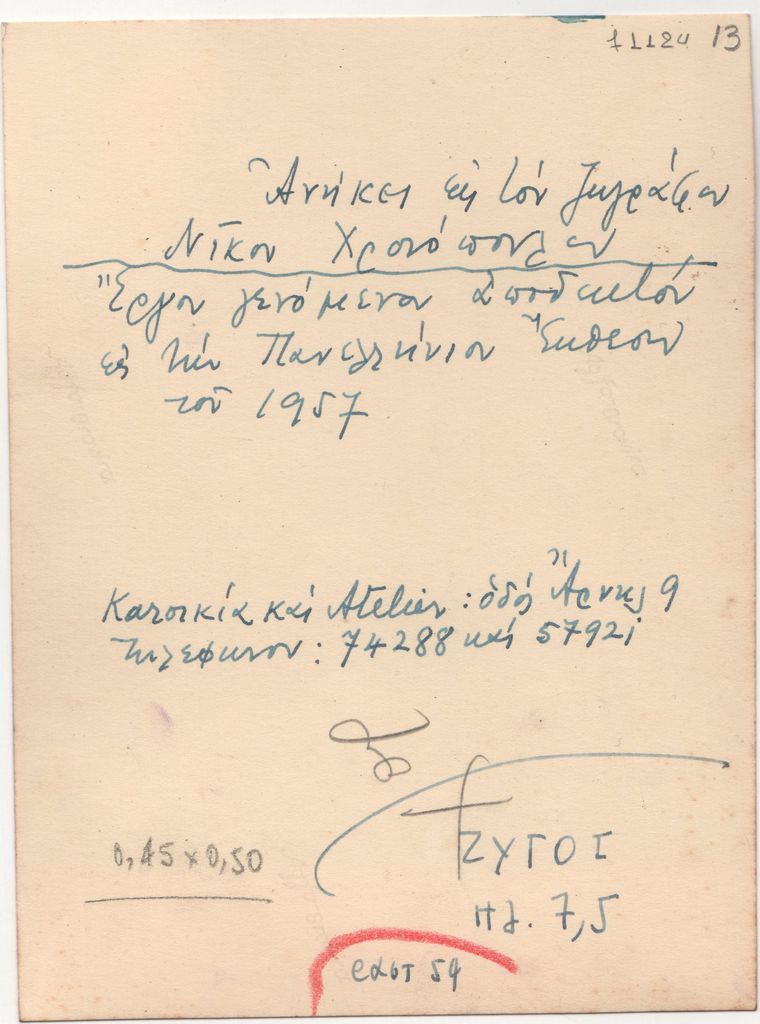 11124 13
Ἀνήκει εἰς τὸν ζωγράφον
Νῖκον Χρονόπουλον
Ἔργον γενόμενον ἀποδεκτόν
εἰς τήν Πανελλήνιον Ἔκθεσιν
τοῦ 1957
Κατοικία καί Atelier: ὁδός Ἄρνης 9
Τηλέφωνον: 74288 καί 57921
0,45 x 0,50
ΖΥΓΟΣ
πλ. 7,5
54